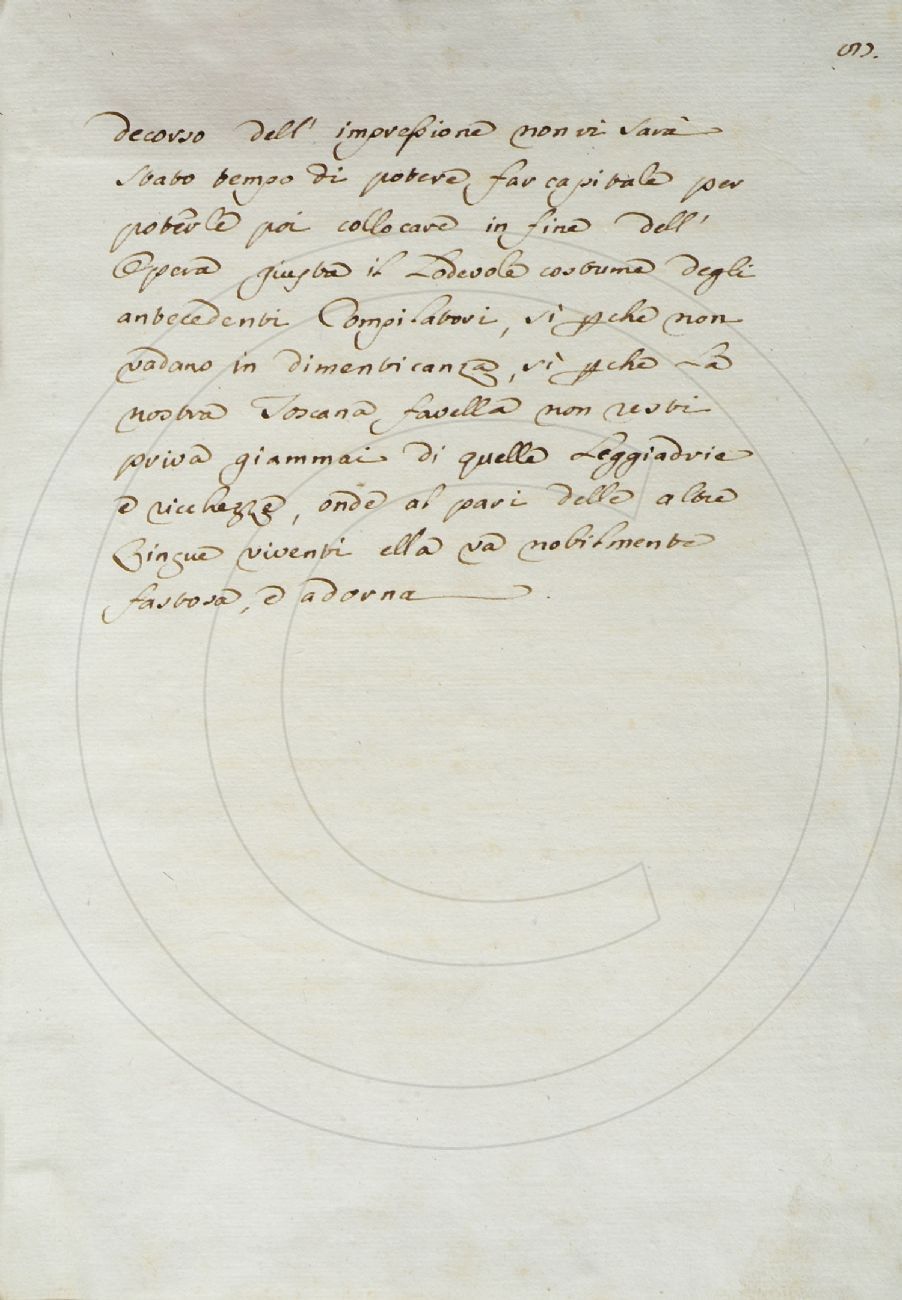 decorso dell' impressione non vi sarà
stato tempo di potere far capitale per
poterle poi collocare in fine dell'
Opera giusta il Lodevole costume degli
antecedenti Compilatori, sì pche non
vadano in dimenticanza, sì pche La
nostra Toscana favella non resti
priva giammai di quelle Leggiadrie
e ricchezze, onde al pari delle altre
Lingue viventi ella và nobilmente
fastosa, e adorna.